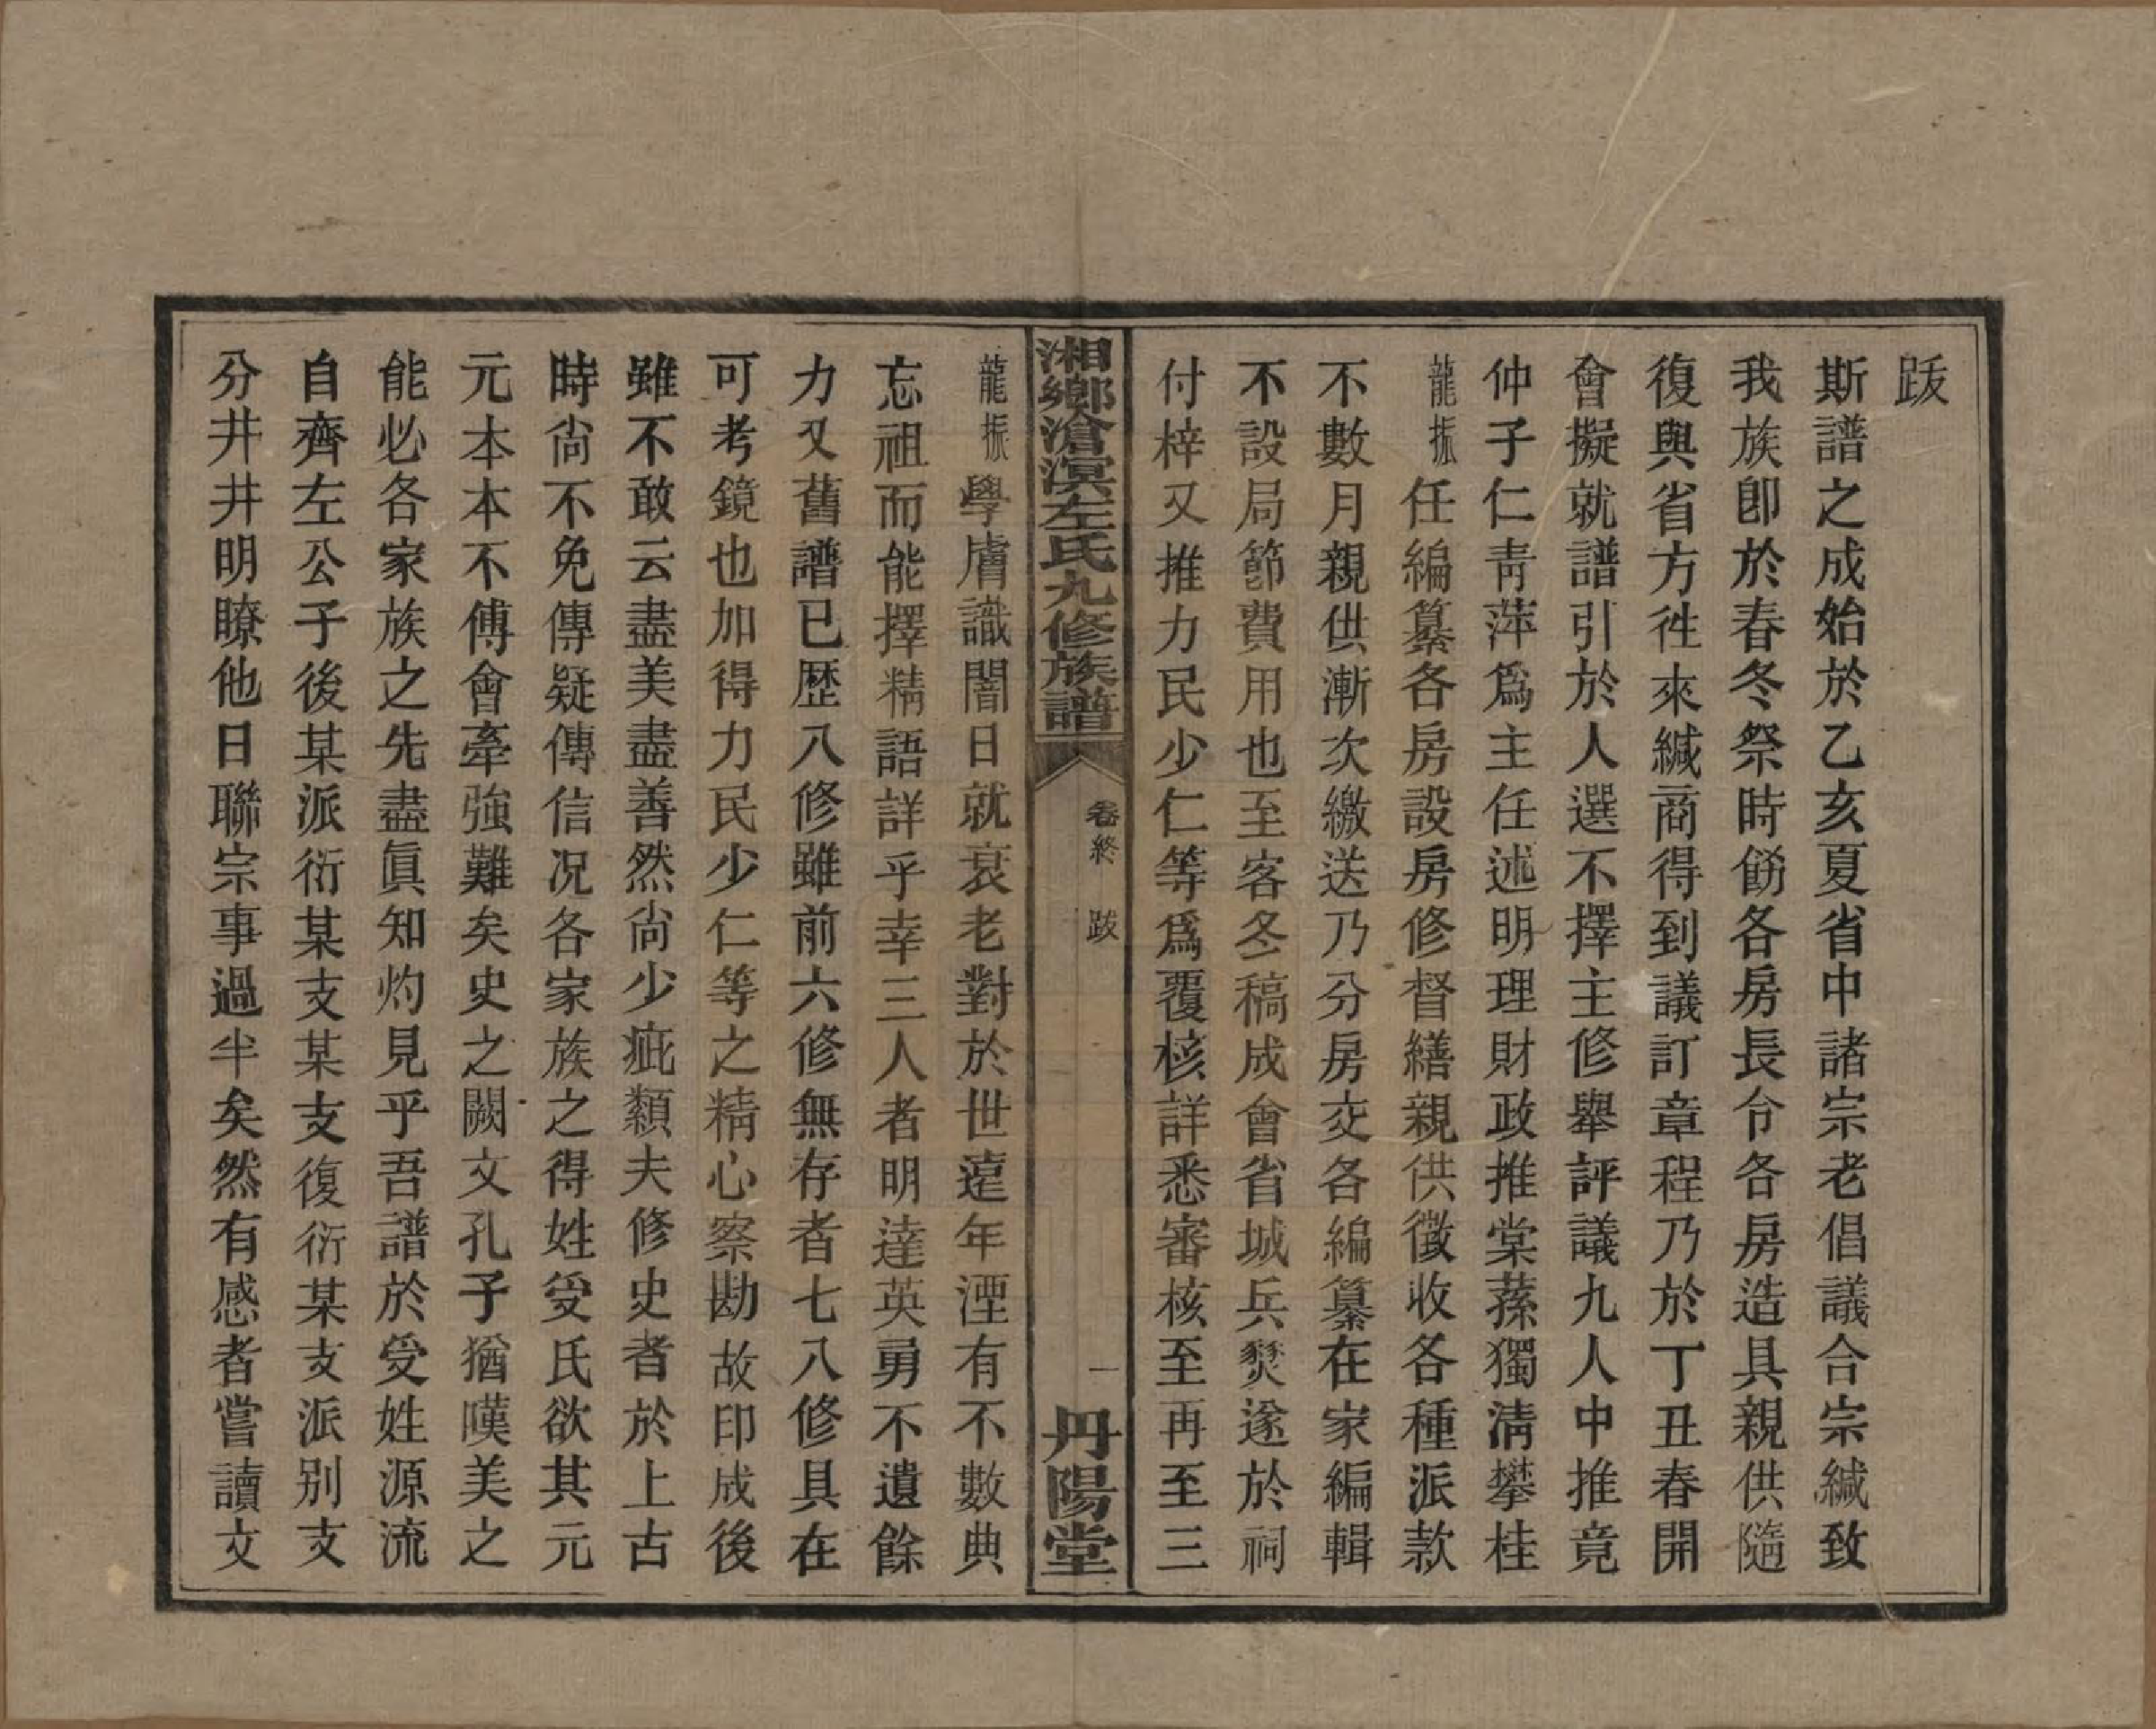 跋
斯譜之成始於乙亥夏省中諸宗老倡議合宗緘致
我族卽於春冬祭時飭各房長令各房造具親供隨
復與省方徃來緘商得到議訂章程乃於丁丑春開
會擬就譜引於人選不擇主修舉評議九人中推竟
仲子仁靑萍爲主任述明理財政推棠蓀獨淸攀桂
龍振任編纂各房設房修督繕親供徵收各種派款
不數月親供漸次繳送乃分房交各編纂在家編輯
不設局節費用也至客冬稿成會省城兵燹遂於祠
付梓又推力民少仁等爲覆核詳悉審核至再至三
湘鄉滄溟左氏九修族譜
卷終 跋
一
丹陽堂
龍振學膚識闇日就衰老對於世遠年湮有不數典
忘祖而能擇精語詳乎幸三人者明達英勇不遺餘
力又舊譜已歷八修雖前六修無存者七八修具在
可考鏡也加得力民少仁等之精心察勘故印成後
雖不敢云盡美盡善然尙少疵纇夫修史者於上古
時尙不免傳疑傳信况各家族之得姓受氏欲其元
元本本不傅會牽強難矣史之闕文孔子猶嘆美之
能必各家族之先盡眞知灼見乎吾譜於受姓源流
自齊左公子後某派衍某支某支復衍某支派別支
分井井明瞭他日聯宗事過半矣然有感者嘗讀文